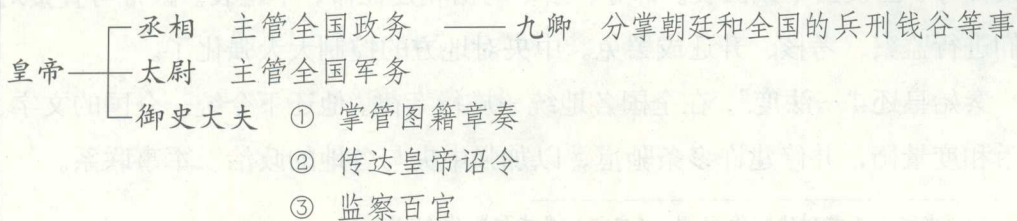 丞相 主管全国政务 九卿 分掌朝廷和全国的兵刑钱谷等事
皇帝 太尉 主管全国军务
御史大夫 ① 掌管图籍章奏
② 传达皇帝诏令
③ 监察百官